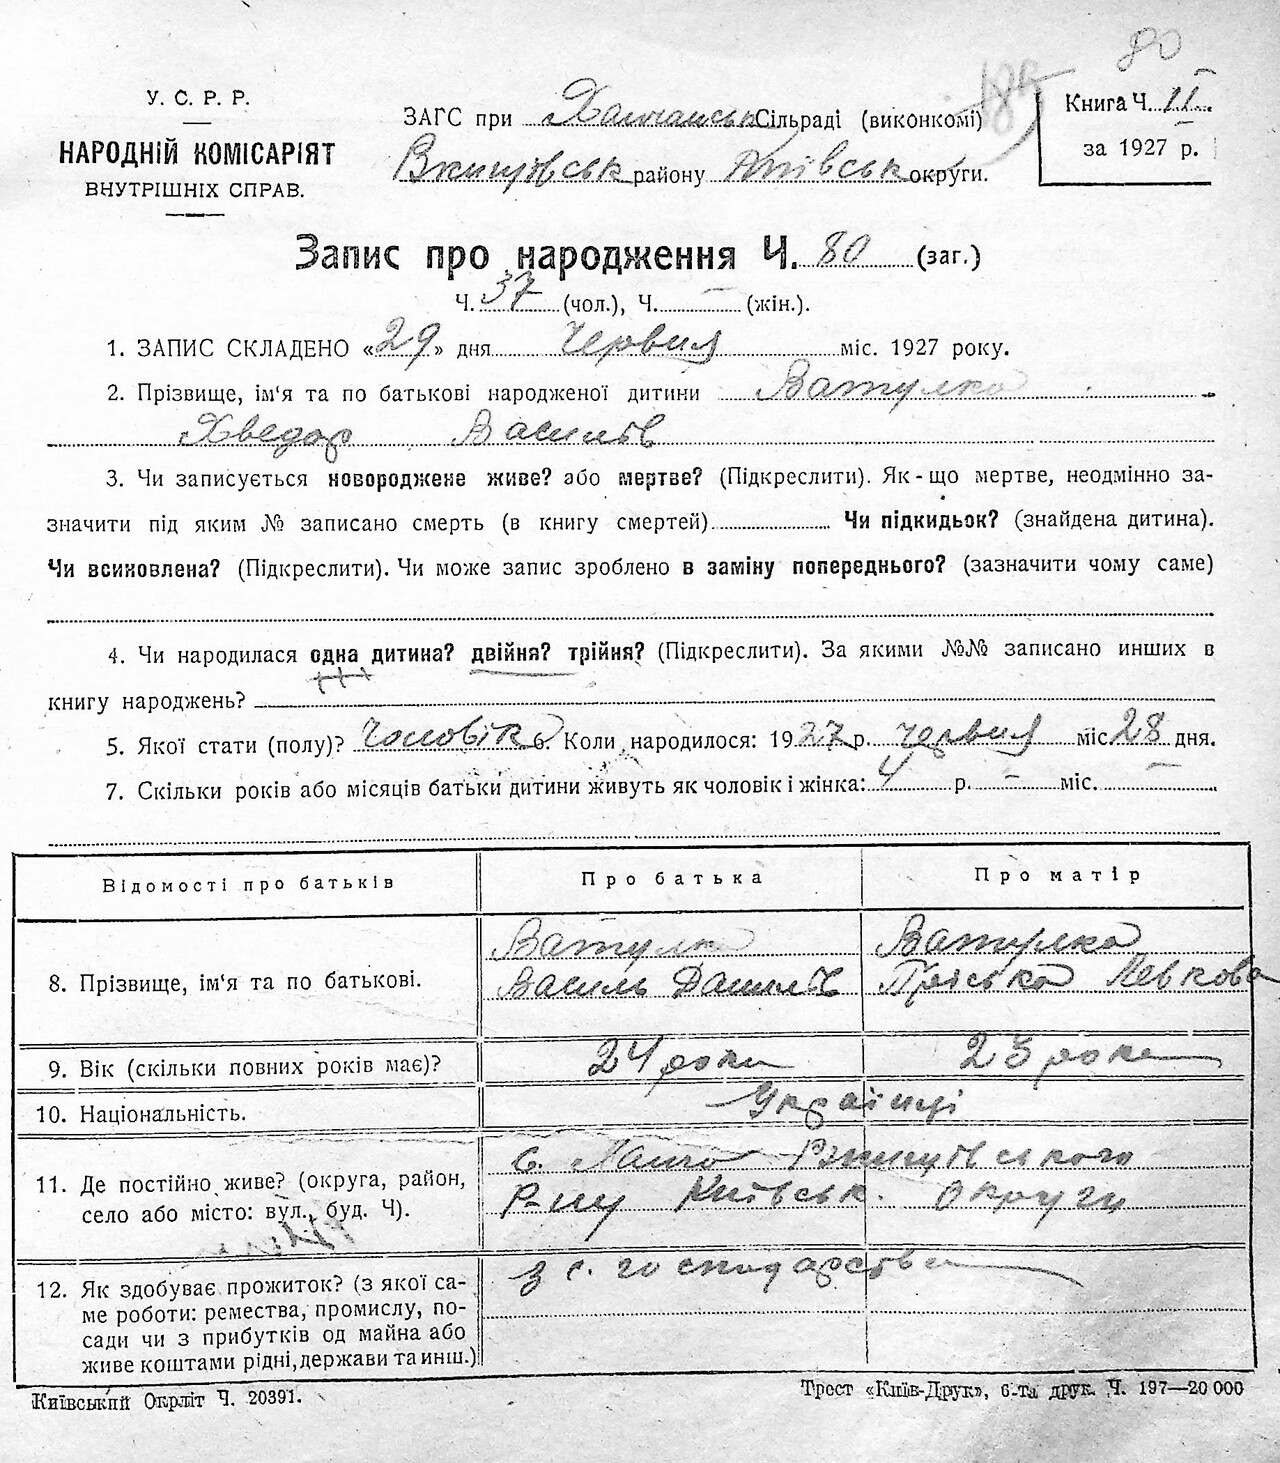 80
У. С. Р. Р.
НАРОДНІЙ КОМІСАРІЯТ
ВНУТРІШНІХ СПРАВ.
ЗАГС при Сільраді (виконкомі)
району Київськ округи.
Книга Ч. II.
за 1927 р.
Запис про народження Ч. 80 (заг.)
Ч. 37 (чол.), Ч. — (жін.).
1. ЗАПИС СКЛАДЕНО «29» дня Червня міс. 1927 року.
2. Прізвище, ім'я та по батькові народженої дитини Ватулко
Хведор Василів
3. Чи записується новороджене живе? або мертве? (Підкреслити). Як-що мертве, неодмінно за-
значити під яким № записано смерть (в книгу смертей) Чи підкидьок? (знайдена дитина).
Чи всиновлена? (Підкреслити). Чи може запис зроблено в заміну попереднього? (зазначити чому саме)
4. Чи народилася одна дитина? двійня? трійня? (Підкреслити). За якими №№ записано инших в
книгу народжень?
5. Якої стати (полу)? Чоловік 6. Коли народилося: 1927 р. червня міс 28 дня.
7. Скільки років або місяців батьки дитини живуть як чоловік і жінка: 4 р. — міс. —
Відомості про батьків Про батька Про матір
8. Прізвище, ім'я та по батькові. Ватулко Ватулко
Василь Данилів Пріська Левкова
9. Вік (скільки повних років має)? 24 роки 23 роки
10. Національність. Українці
11. Де постійно живе? (округа, район, с. Ржищівського
село або місто: вул., буд. Ч). Р-ну Київськ. округи
12. Як здобуває прожиток? (з якої са- З с. господарства
ме роботи: ремества, промислу, по-
сади чи з прибутків од майна або
живе коштами рідні, держави та инш.)
Київський Окрліт Ч. 20391.
Трест «Київ-Друк», 6-та друк. Ч. 197—20 000